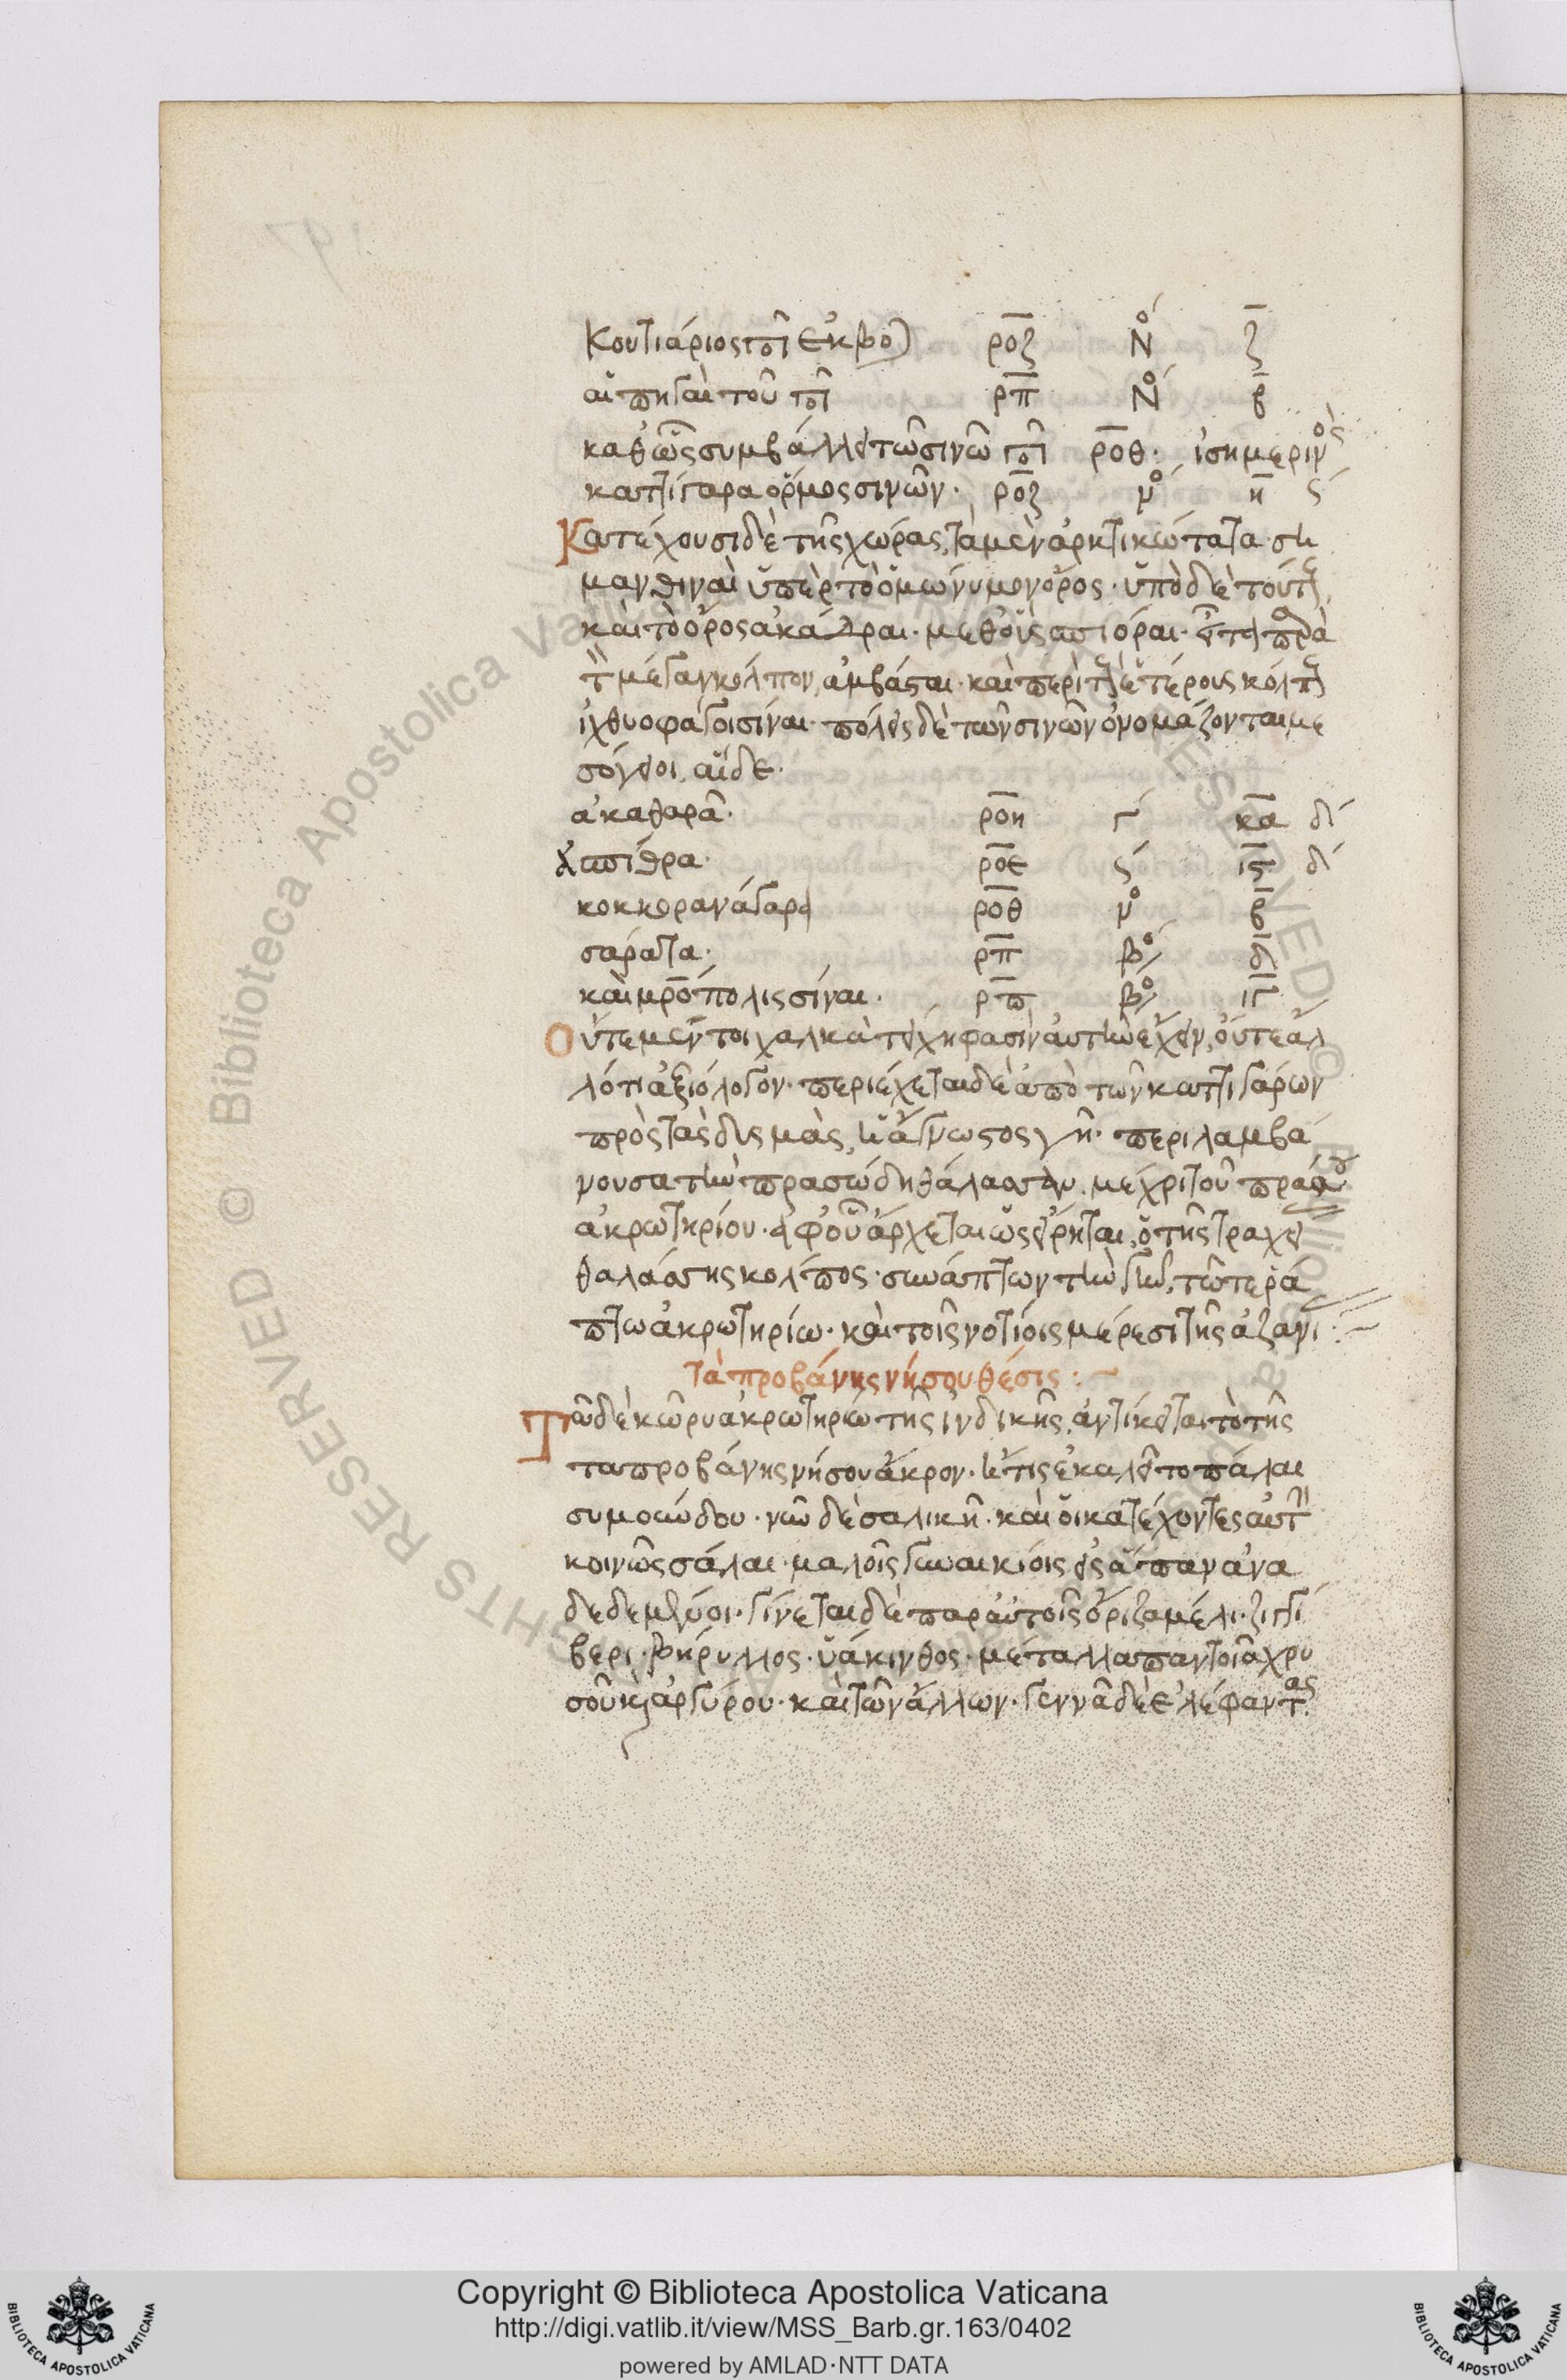 Κουτιάριος ποτ εκβο) ροζ Νο ζ
αἱ πηγαὶ τοῦ ποτ ρπ Νο β
καθ ὡς συμβάλλει τῶ σινῶ ποτ ροθ · ἰσημερινὸς
καττίγαρα ὅρμος σινῶν · ροζ νο η ς
Κατέχουσι δὲ τῆς χώρας, τὰ μὲν ἀρκτικώτατα · ση
μανθιναὶ ὑπὲρ τὸ ὁμώνυμον ὄρος · ὑπὸ δὲ τούτους
καὶ τὸ ὄρος ἀκάδραι · μεθ οὓς ἀσπιθραι · εἶτα παρὰ
τὸν μέγαν κόλπον, ἀμβάσται · καὶ περὶ τοὺς ἑτέρους κόλπους
ἰχθυοφάγοι σίναι · πόλεις δὲ τῶν σινῶν ὀνομάζονται με
σόγειοι αἵδε ·
ἀκαθαρα · ροη γ κα δ
ἀσπίθρα · ροε ς ις δ
κοκκορανάγαρα ροθ νο β
σαράτα · ρπ βο δ
καὶ μρόπολις σίναι · ρπ βο ιγ
Οὔτε μέντοι χαλκὰ τείχη φασὶν αὐτὴν ἔχειν, οὔτε ἄλ
λό τι ἀξιόλογον · περιέχεται δὲ ἀπὸ τῶν καττιγάρων
πρὸς τὰς δυσμὰς, ἡ ἄγνωστος γῆ · περιλαμβά
νουσα τὴν πρασώδη θάλασσαν, μέχρι τοῦ πράσου
ἀκρωτηρίου · ἀφ οὗ ἄρχεται ὡς εἴρηται, ὁ τῆς τραχεί
θαλάσσης κόλπος · συνάπτων τὴν γῆν, τῶ τε ῥά
πτω ἀκρωτηρίω · καὶ τοῖς νοτίοις μέρεσι τῆς ἀζανί :~
Ταπροβάνης νήσου θέσις : ~
Τῶ δὲ κῶρυ ἀκρωτηρίω τῆς ἰνδικῆς, ἀντίκειται τὸ τῆς
ταπροβάνης νήσου ἄκρον · ἥτις ἐκαλεῖτο πάλαι
συμούνδου · νῦν δὲ σαλικὴ · καὶ οἱ κατέχοντες αὐτὴν
κοινῶς σάλαι · μαλοῖς γυναικίοις εἰς ἅπαν ἀνα
δεδεμένοι · γίνεται δὲ παρ αὐτοῖς ὄρυζα μέλι · ζιγγί
βερι · βήρυλλος · ὑάκινθος · μέταλλα παντοῖα χρυ
σοῦ καὶ ἀργύρου · καὶ τῶν ἄλλων · γεννᾶ δὲ ἐλέφαντας
Copyright © Biblioteca Apostolica Vaticana
http://digi.vatlib.it/view/MSS_Barb.gr.163/0402
powered by AMLAD·NTT DATA